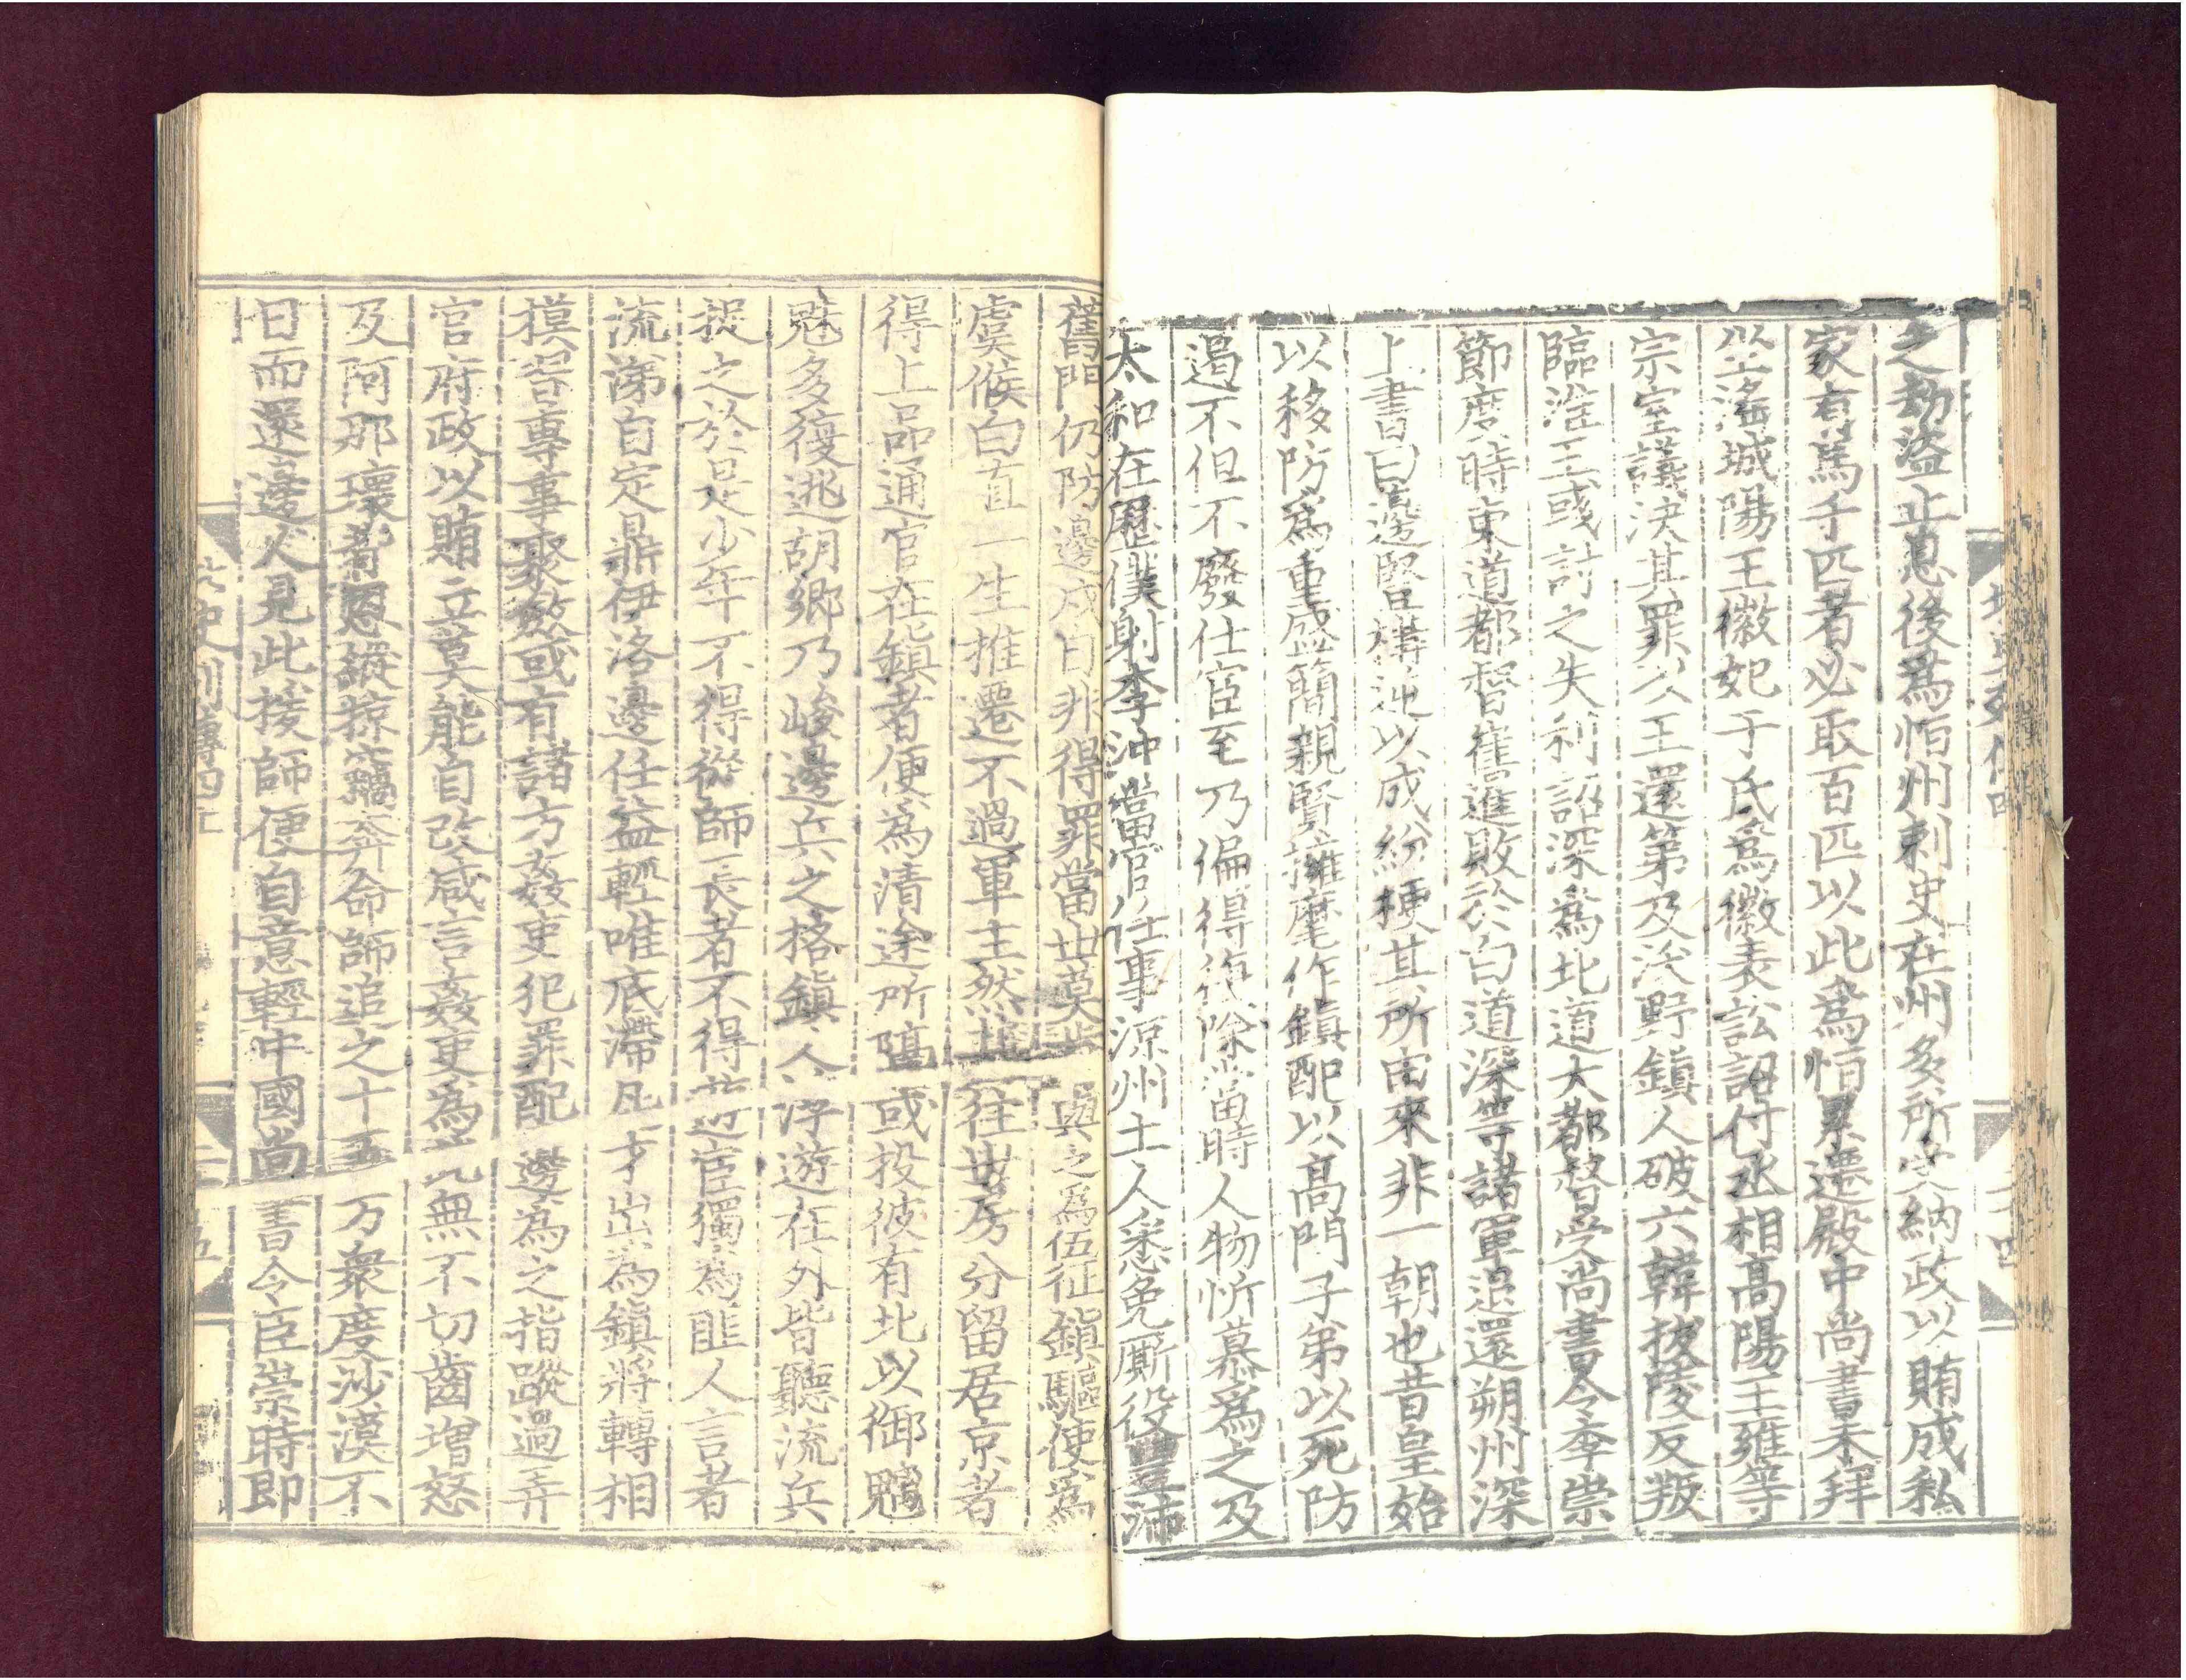 之劫盜止息後爲恒州刺史在州多所受納政以賄成私
家有馬千匹者必取百匹以此爲恒累遷殿中尚書未拜
坐淫城陽王徽妃于氏爲徽表訟詔付丞相高陽王雍等
宗室議決其罪以王還第及沃野鎮人破六韓拔陵反叛
臨淮王彧討之失利詔深爲北道大都督受尚書令李崇
節度時東道都督崔暹敗於白道深等諸軍退還朔州深
上書曰邊豎構逆以成紛梗其所由來非一朝也昔皇始
以移防爲重盛簡親賢擁麾作鎮配以高門子弟以死防
遏不但不廢仕宦至乃偏得復除當時人物忻慕爲之及
太和在歷僕射李沖當官任事源州土人悉免厮役豐沛
舊門仍防邊戍自非得罪當世莫與之爲伍征鎮驅使爲
虞候白直一生推遷不過軍主然其往世房分留居京者
得上品通官在鎮者便爲清途所隔或投彼有北以御魑
魅多復逃胡鄉乃峻邊兵之格鎮人浮遊在外皆聽流兵
捉之於是少年不得從師長者不得遊宦獨爲匪人言者
流涕自定鼎伊洛邊任益輕唯底滯凡才出爲鎮將轉相
摸習專事聚斂或有諸方姦吏犯罪配邊爲之指蹤過弄
官府政以賄立莫能自改咸言姦吏爲此無不切齒增怒
及阿那瓌背恩縱掠竊奔命師追之十五万衆度沙漠不
日而還邊人見此援師便自意輕中國尚書令臣崇時即
北史列傳四